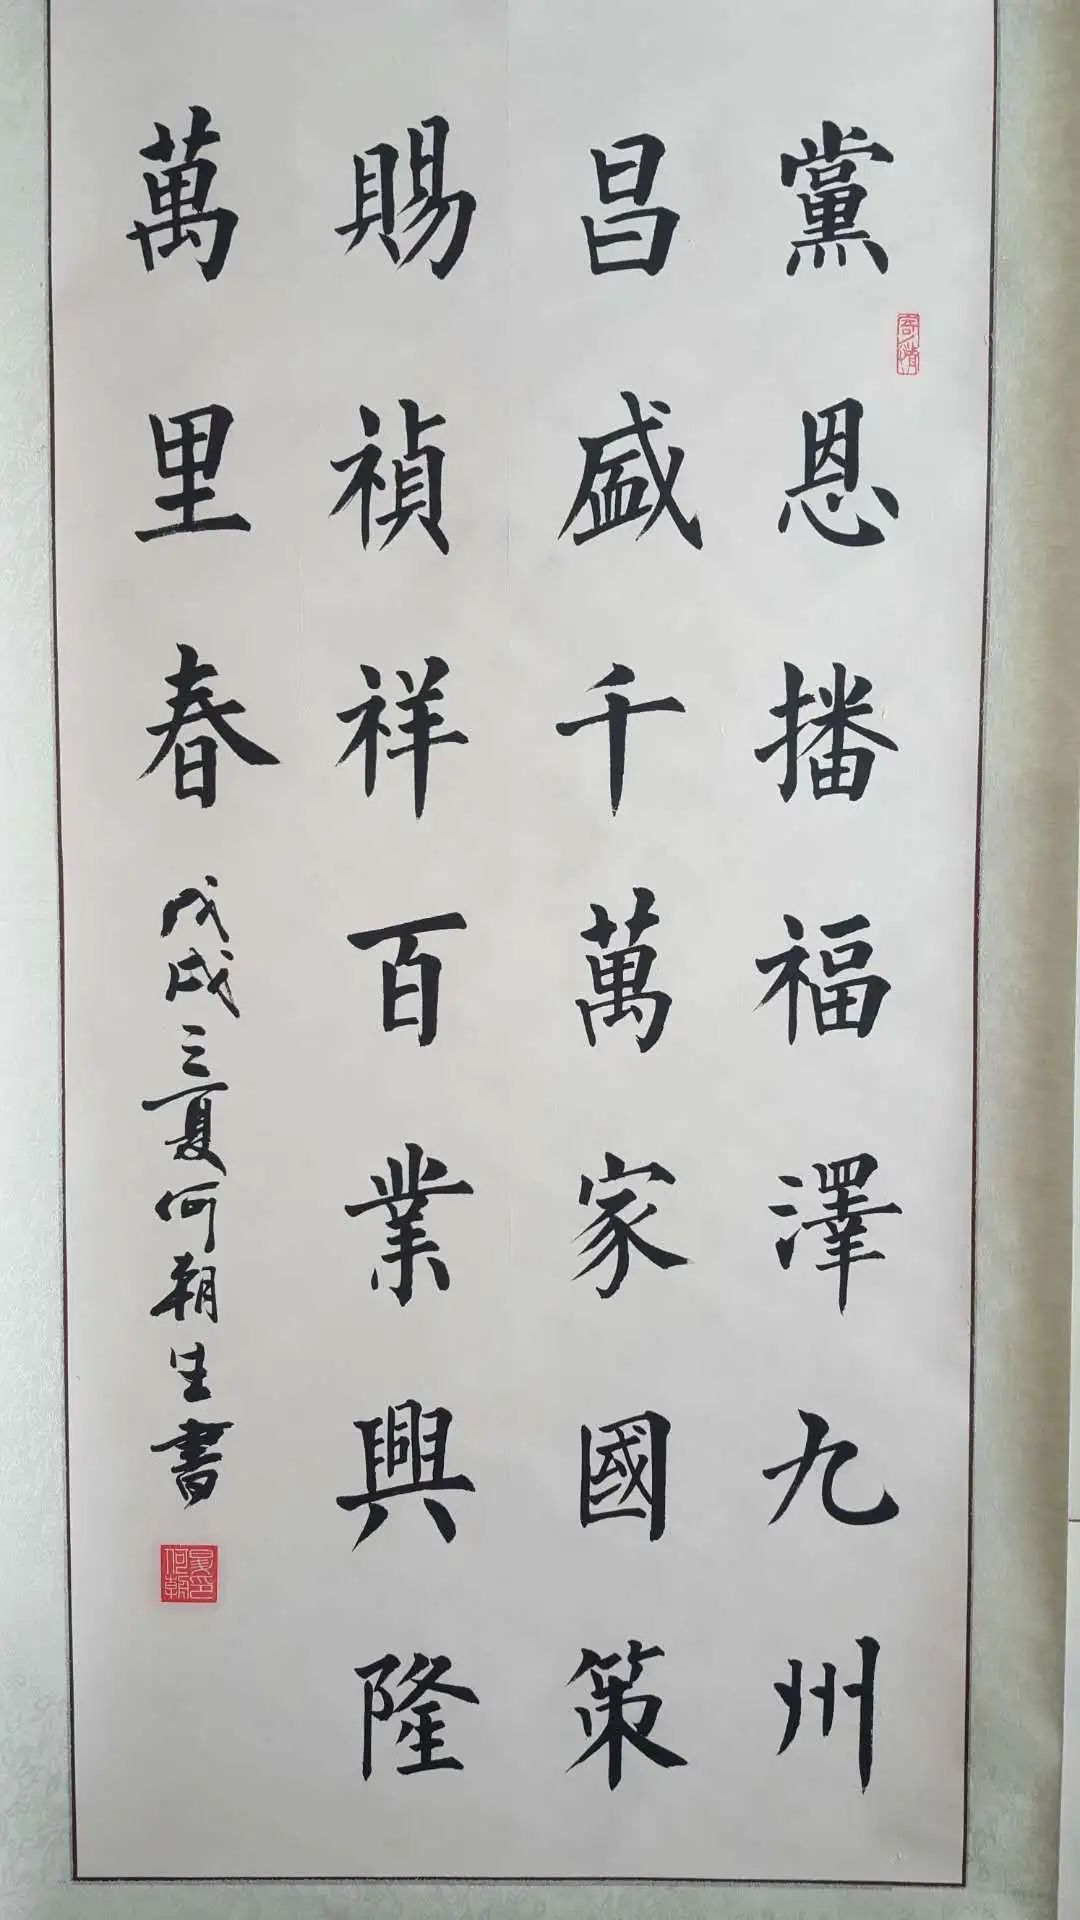 黨恩播福澤九州
昌盛千萬家國策
賜禎祥百業興隆
萬里春
戊戌三夏何朝生書
寄情